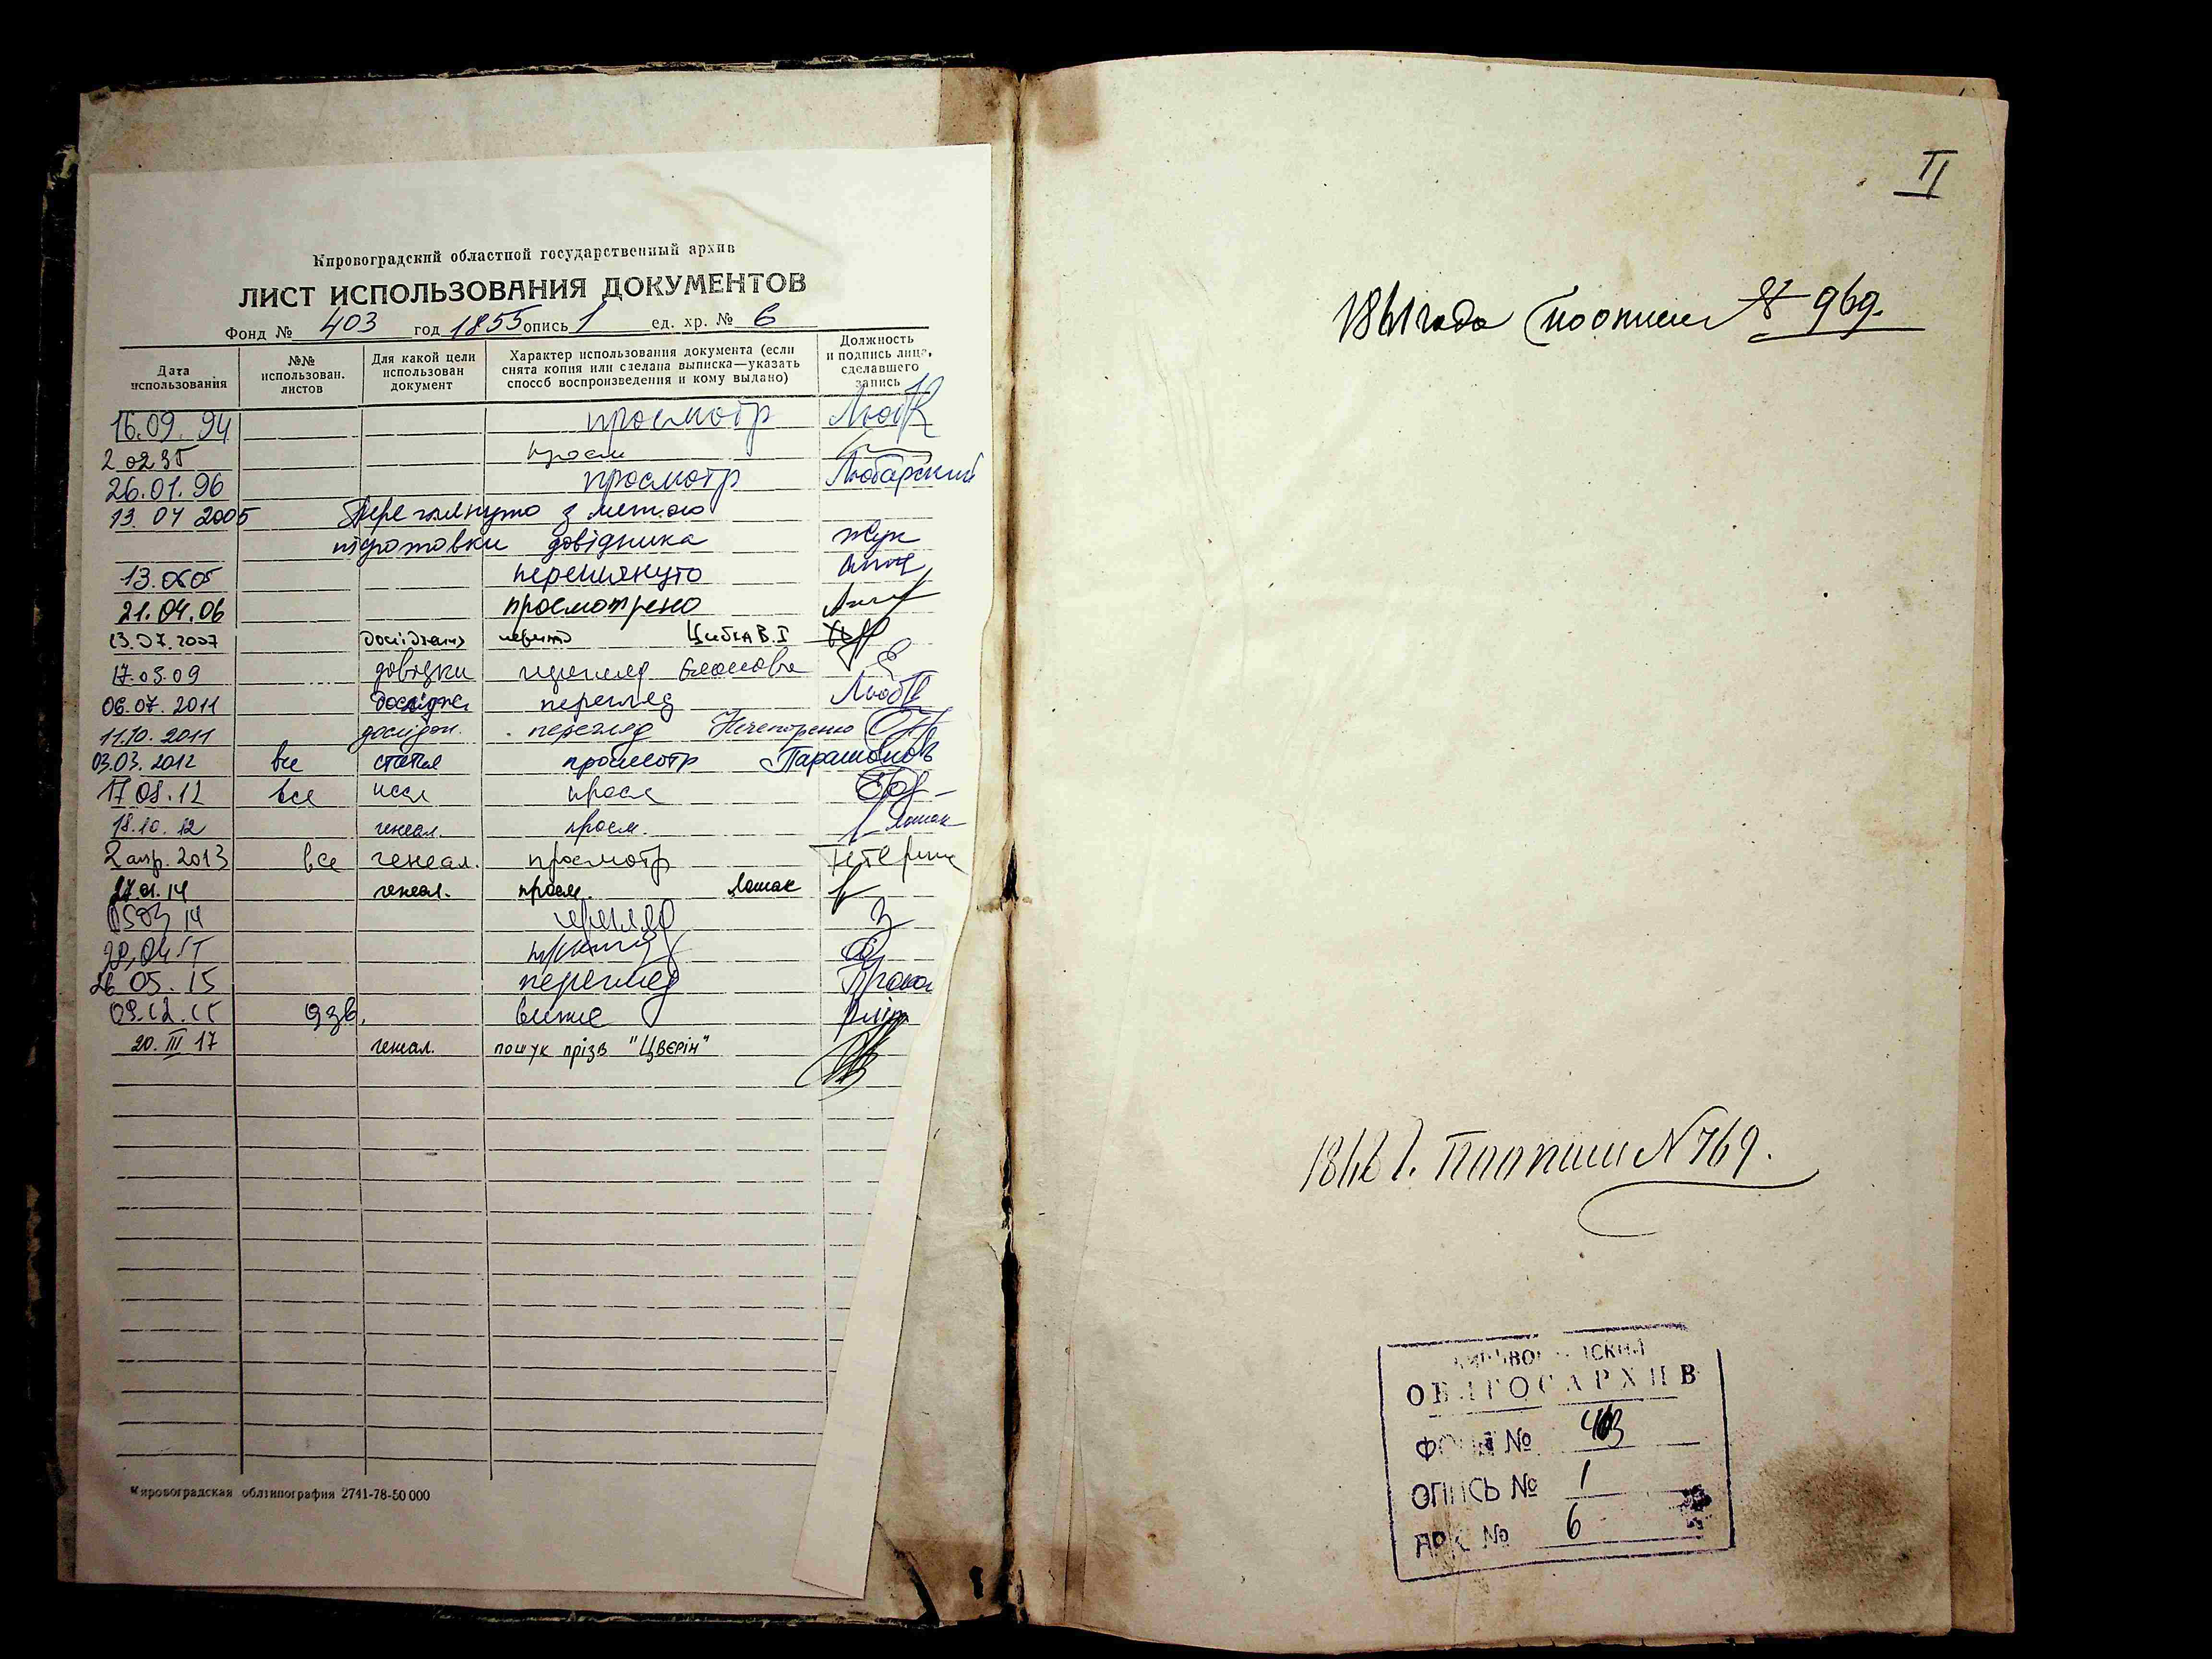 Кировоградский областной государственный архив
ЛИСТ ИСПОЛЬЗОВАНИЯ ДОКУМЕНТОВ
Фонд № 403 год 1855 опись 1 ед. хр. № 6
Дата использования
№№ использован. листов
Для какой цели использован документ
Характер использования документа (если снята копия или сделана выписка—указать способ воспроизведения и кому выдано)
Должность и подпись лица, сделавшего запись
16.09.94 просмотр
2 02 95 просм
26.01.96 просмотр Любарский
13.04 2005 Переглянуто з метою
підготовки довідника Жук
13.06 05 переглянуто
21.04.06 просмотрено
13.07.2007 Цибка В.І
17.03.09 довідки перегляд
06.07.2011 дослідже перегляд
11.10.2011 дослідж. перегляд Нечепоренко
03.03.2012 все статья просмотр Парамонов
17 08.12 все иссл просм
18.10.12 генеал. просм. Лошак
2 апр. 2013 все генеал. просмотр
27.01.14 генеал. просм. Лошак
05 03 14 перегляд
28.04.15
26 05.15 перегляд
09.12.15
20.III 17 генеал. пошук прізв "Цвєрін"
Кировоградская облтипография 2741-78-50 000
II
1861 года по описи № 969.
По описи N 769.
КИРОВОГРАДСКИЙ
ОБЛГОСАРХИВ
ФОНД № 403
ОПИСЬ № 1
АРХ. № 6